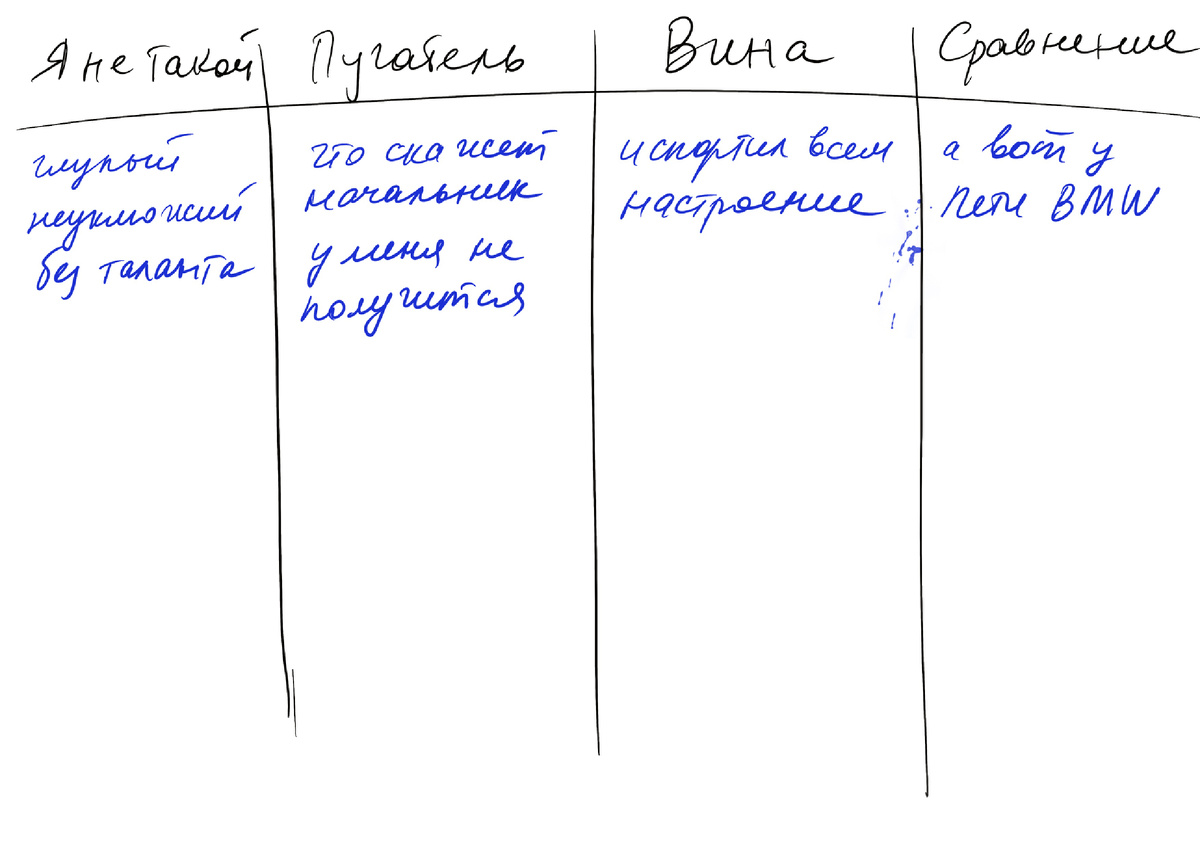 Я не такой
Пугатель
Вина
Сравнение
глупый
неуклюжий
без таланта
что скажет
начальник
у меня не
получится
испортил всем
настроение
а вот у
Пети BMW